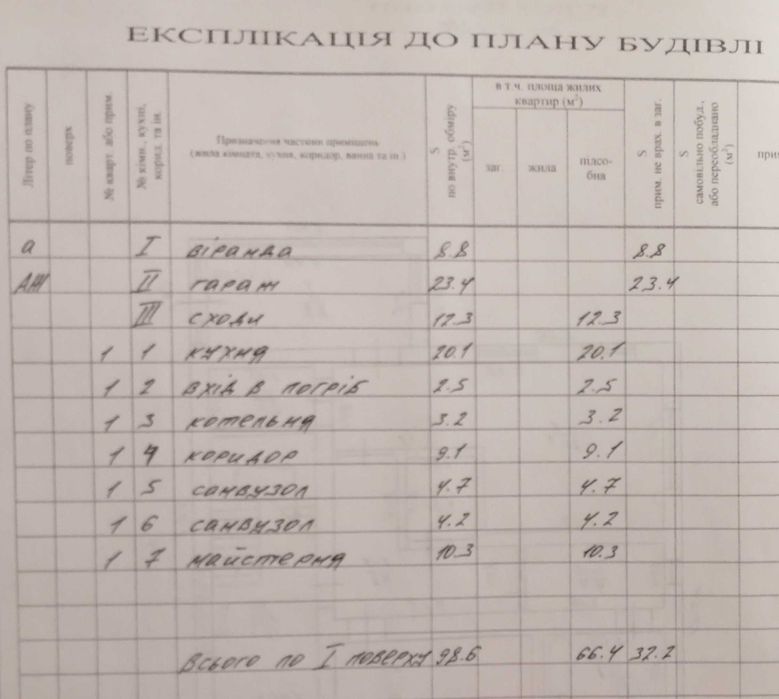 ЕКСПЛІКАЦІЯ ДО ПЛАНУ БУДІВЛІ
Літер по плану
поверх
№ кварт. або прим.
№ кімн., кухні, корид. та ін.
Призначення частини приміщень
(жила кімната, кухня, коридор, ванна та ін.)
S по внутр. обміру (м²)
в т.ч. площа жилих
квартир (м²)
заг.
жила
підсо-
бна
S прим. не врах. в заг.
S самовільно побуд., або переобладнано (м²)
а I віранда 8.8 8.8
II гараж 23.4 23.4
III сходи 12.3 12.3
1 1 кухня 20.1 20.1
1 2 вхід в погріб 2.5 2.5
1 3 котельня 3.2 3.2
1 4 коридор 9.1 9.1
1 5 санвузол 4.7 4.7
1 6 санвузол 4.2 4.2
1 7 майстерня 10.3 10.3
Всього по I поверху 98.6 66.4 32.2